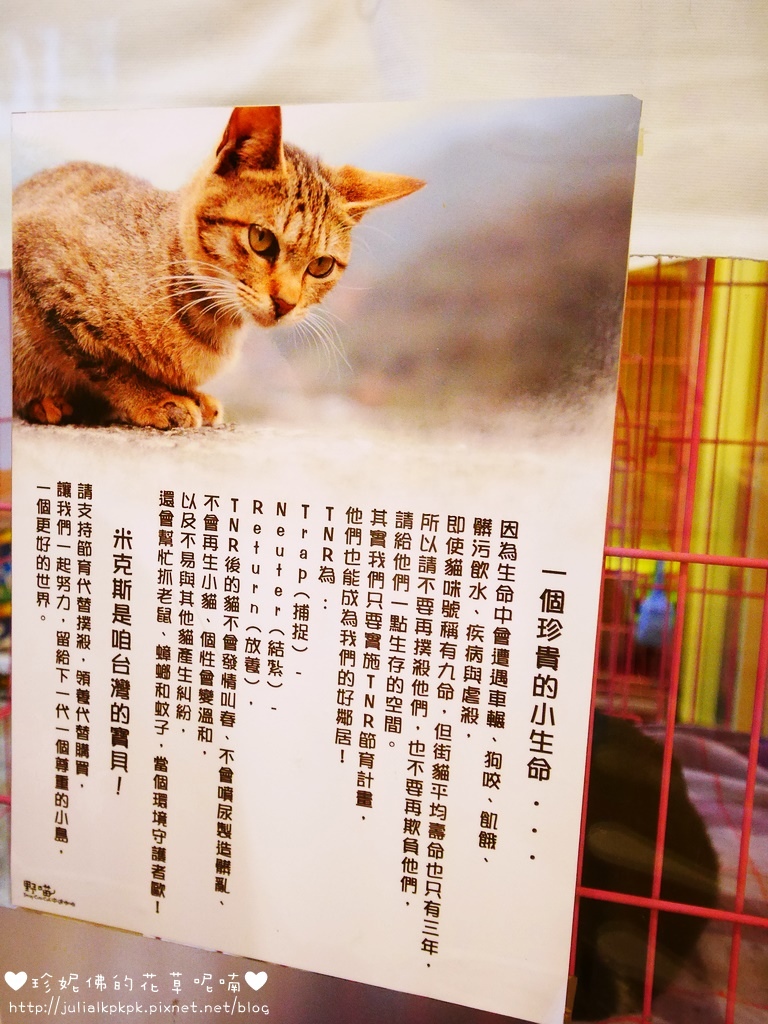 一個珍貴的小生命...
因為生命中會遭遇車輾、狗咬、飢餓、
髒污飲水、疾病與虐殺，
即使貓咪號稱有九命，但街貓平均壽命也只有三年，
所以請不要再撲殺他們，也不要再欺負他們，
請給他們一點生存的空間。
其實我們只要實施TNR節育計畫，
他們也能成為我們的好鄰居！
TNR為：
Trap(捕捉)-
Neuter(結紮)-
Return(放養)，
TNR後的貓不會發情叫春、不會噴尿製造髒亂、
不會再生小貓、個性會變溫和，
以及不易與其他貓產生糾紛，
還會幫忙抓老鼠、蟑螂和蚊子，當個環境守護者歐！
米克斯是咱台灣的寶貝！
請支持節育代替撲殺，領養代替購買，
讓我們一起努力，留給下一代一個尊重的小島，
一個更好的世界。
野喵
♥珍妮佛的花草呢喃♥
http://julialkpkpk.pixnet.net/blog